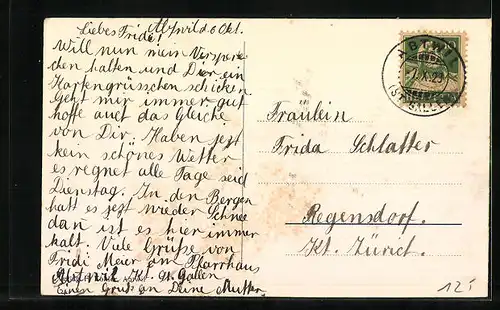 Abtwil. 6 Okt.
Liebes Fride!
Will nun mein Verspre
chen halten und Dir ein
Kartengrüsschen schicken
Geht mir immer gut
hoffe auch das Gleiche
von Dir. Haben jezt
kein schönes Wetter
es regnet alle Tage seid
Dienstag. In den Bergen
hatt es jezt wieder Schnee
dan ist es hier immer
kalt. Viele Grüße von
Fridi Meier am Pfarrhaus
Abtwil Kt. St. Gallen
Einen Gruß an Deine Mutter.
ABTWIL
7.X.23
(ST. GALLEN)
Fräulein
Frida Schlatter
Regensdorf.
Kt. Zürich.
125